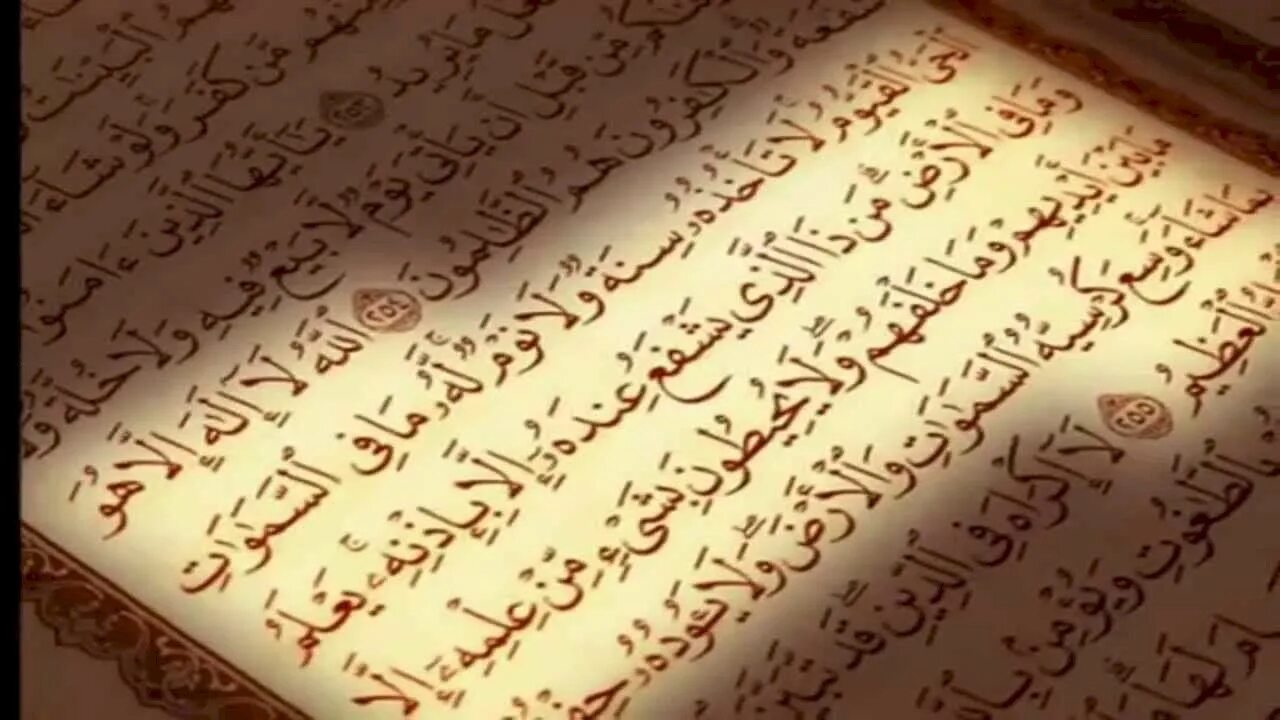 ـهُمُ ٱلْبَيِّنَٰتُ
مَّن كَفَرَ وَلَوْ شَآءَ
مَا يُرِيدُ ٢٥٣ يَٰٓأَيُّهَا ٱلَّذِينَ ءَامَنُوٓا۟
مِّن قَبْلِ أَن يَأْتِىَ يَوْمٌ لَّا بَيْعٌ فِيهِ وَلَا خُلَّةٌ
وَٱلْكَٰفِرُونَ هُمُ ٱلظَّٰلِمُونَ ٢٥٤ ٱللَّهُ لَآ إِلَٰهَ إِلَّا هُوَ
ٱلْحَىُّ ٱلْقَيُّومُ لَا تَأْخُذُهُۥ سِنَةٌ وَلَا نَوْمٌ لَّهُۥ مَا فِى ٱلسَّمَٰوَٰتِ
وَمَا فِى ٱلْأَرْضِ مَن ذَا ٱلَّذِى يَشْفَعُ عِندَهُۥٓ إِلَّا بِإِذْنِهِۦ يَعْلَمُ
مَا بَيْنَ أَيْدِيهِمْ وَمَا خَلْفَهُمْ وَلَا يُحِيطُونَ بِشَىْءٍ مِّنْ عِلْمِهِۦٓ إِلَّا
بِمَا شَآءَ وَسِعَ كُرْسِيُّهُ ٱلسَّمَٰوَٰتِ وَٱلْأَرْضَ وَلَا يَـُٔودُهُۥ حِفْظُ
ٱلْعَظِيمُ ٢٥٥ لَآ إِكْرَاهَ فِى ٱلدِّينِ قَد تَّبَيَّنَ
بِٱلطَّٰغُوتِ وَيُؤْمِنۢ بِٱللَّهِ
لَهَا